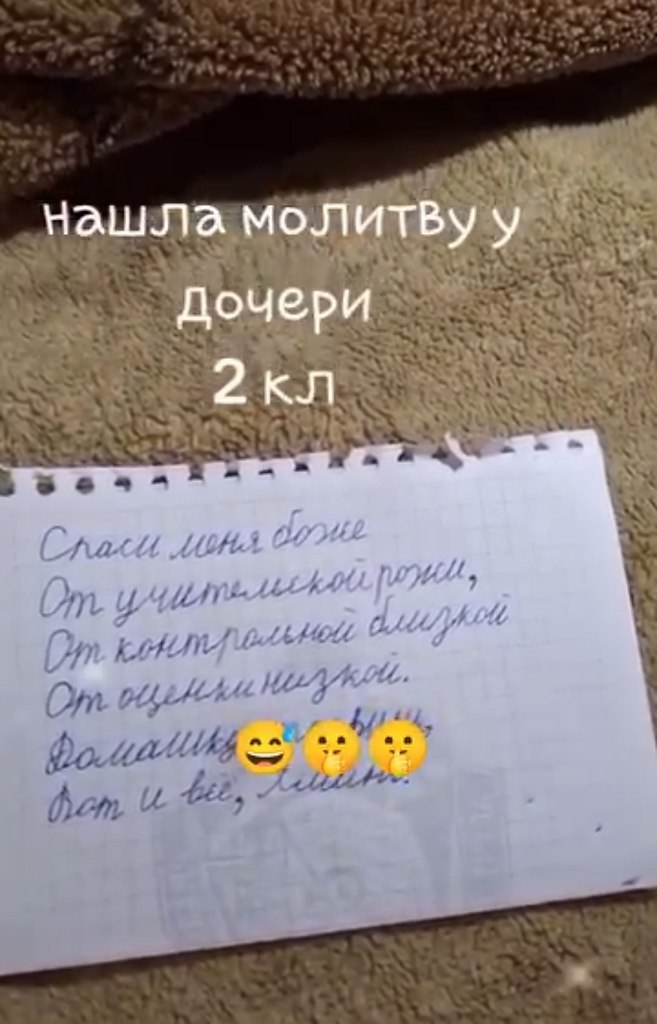 нашла молитву у
дочери
2 кл
Спаси меня боже
От учительской рожи,
От контрольной близкой
От оценки низкой.
Домашку
Вот и всё, Аминь.